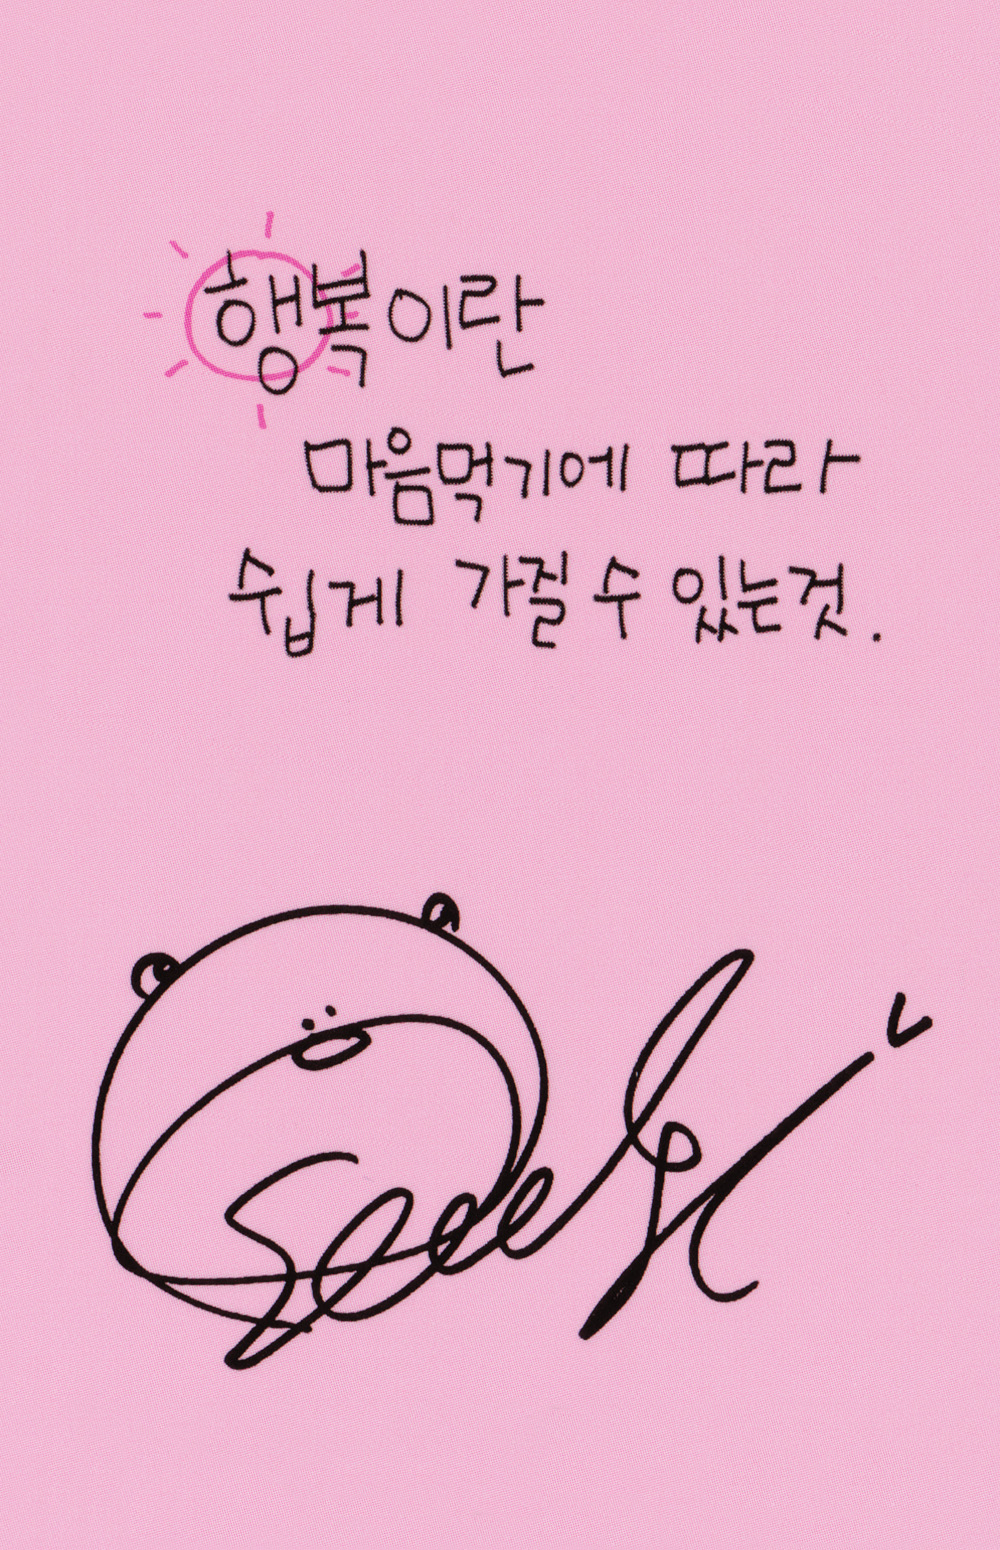 행복이란
마음먹기에 따라
쉽게 가질 수 있는것.